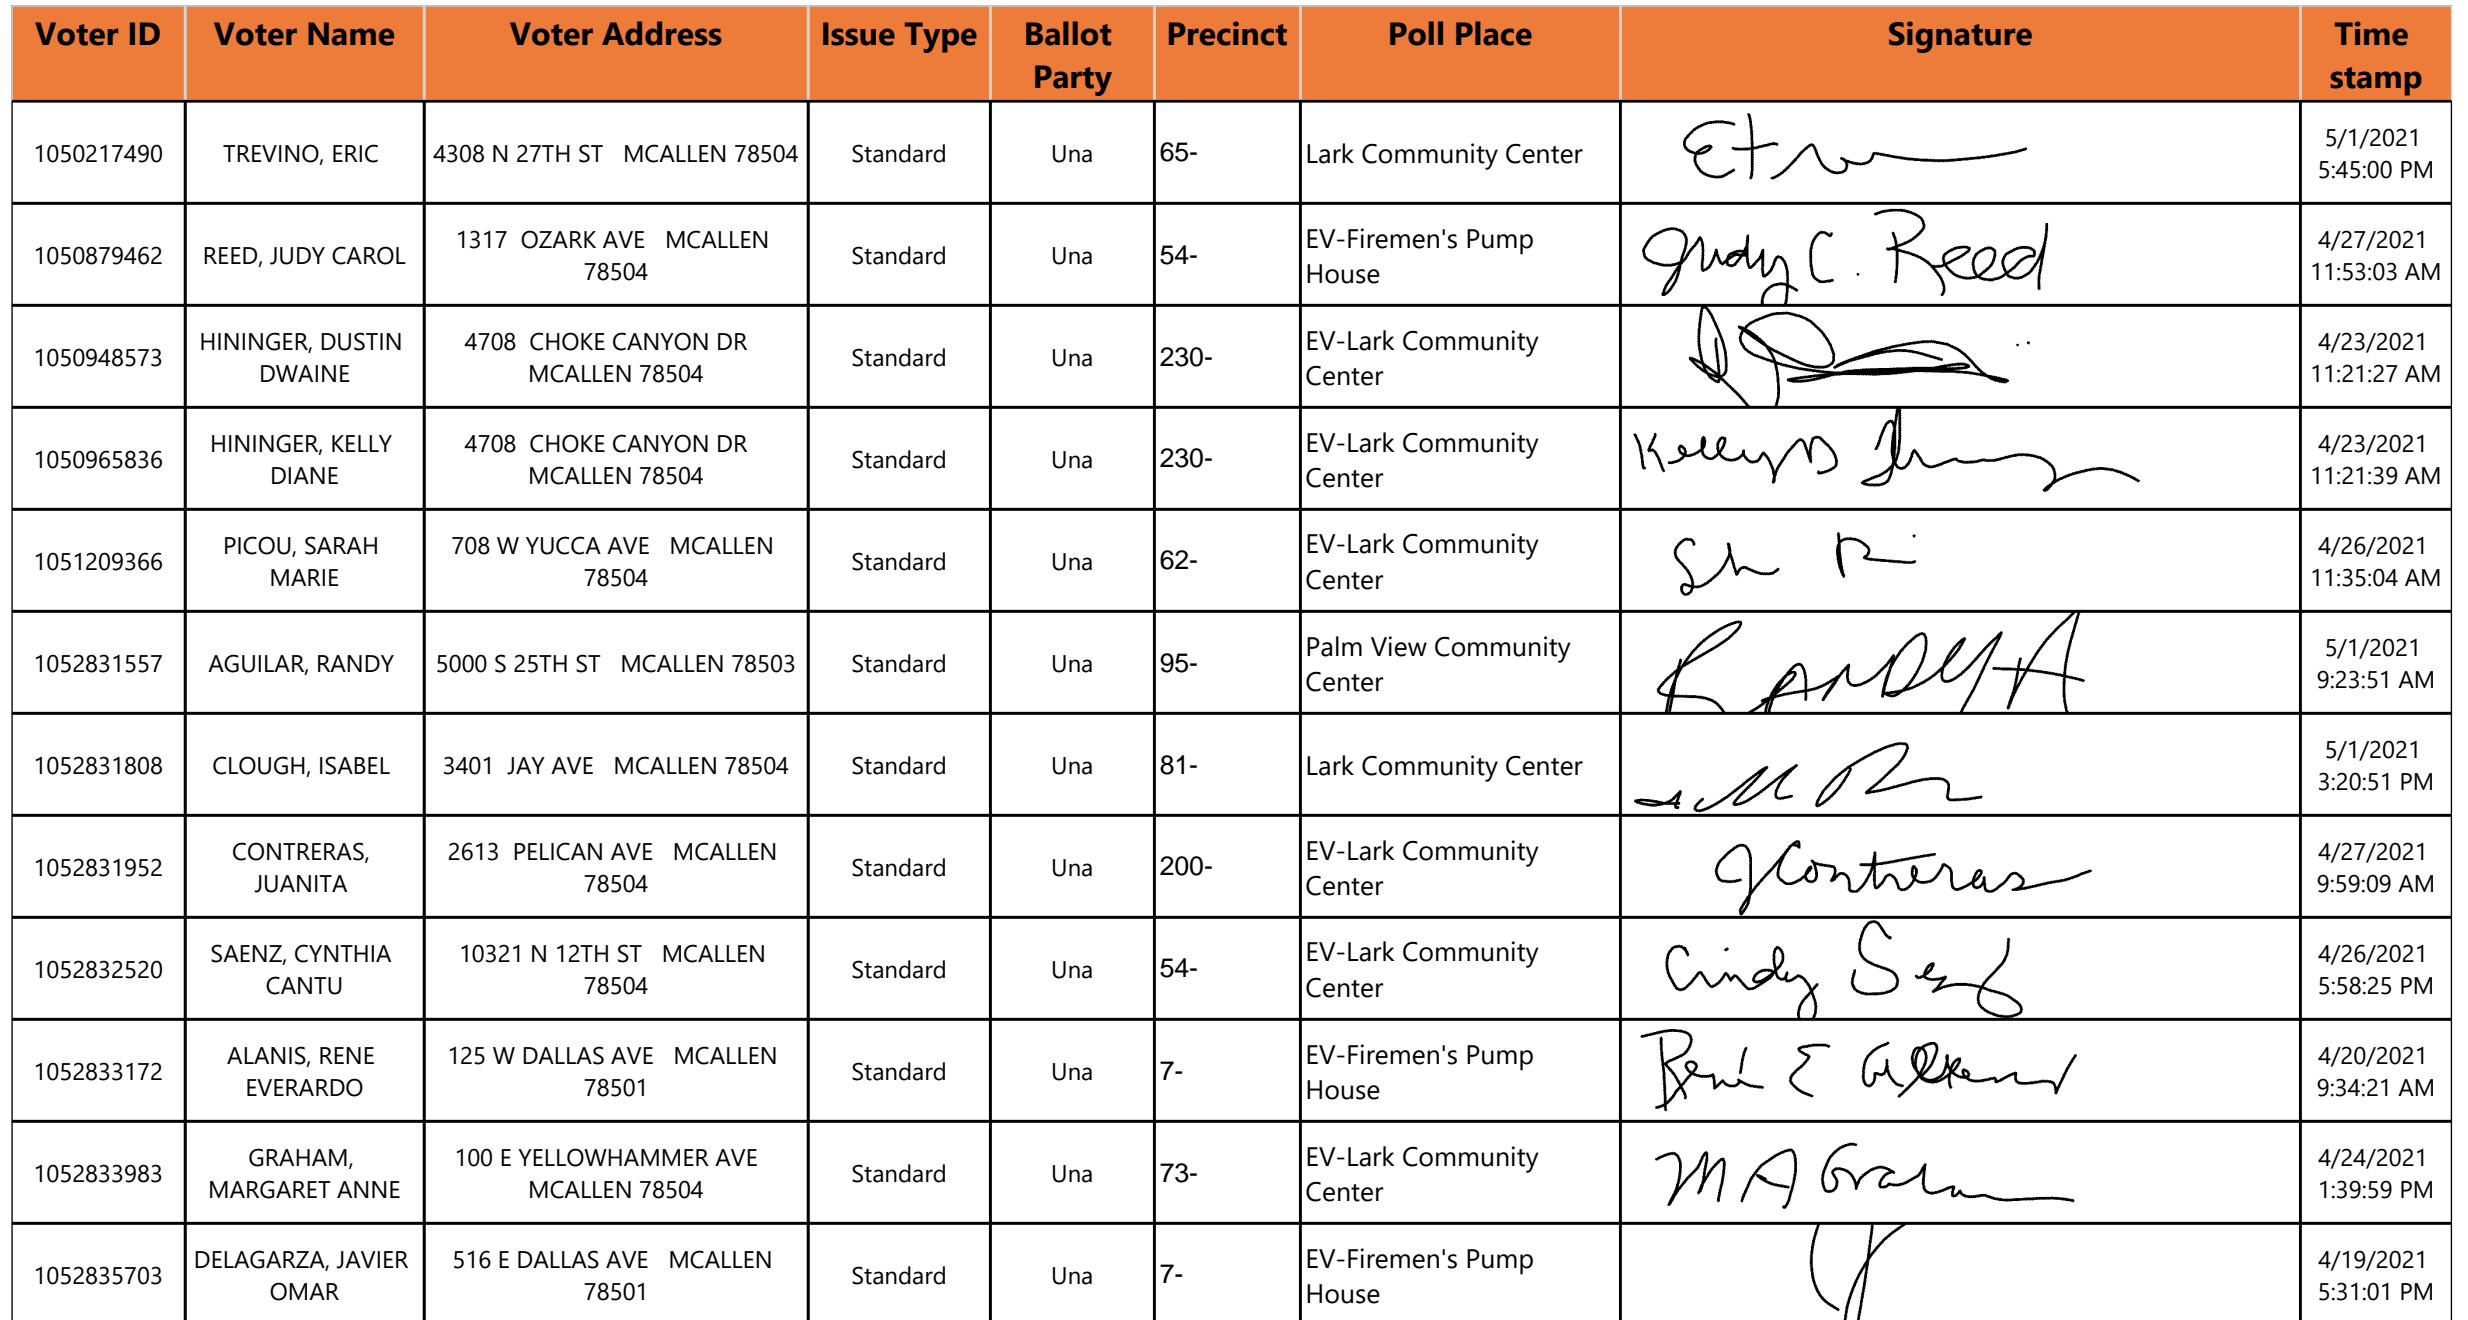 Voter ID Voter Name Voter Address Issue Type Ballot Party Precinct Poll Place Signature Time stamp
1050217490 TREVINO, ERIC 4308 N 27TH ST MCALLEN 78504 Standard Una 65- Lark Community Center 5/1/2021 5:45:00 PM
1050879462 REED, JUDY CAROL 1317 OZARK AVE MCALLEN 78504 Standard Una 54- EV-Firemen's Pump House Judy C. Reed 4/27/2021 11:53:03 AM
1050948573 HININGER, DUSTIN DWAINE 4708 CHOKE CANYON DR MCALLEN 78504 Standard Una 230- EV-Lark Community Center 4/23/2021 11:21:27 AM
1050965836 HININGER, KELLY DIANE 4708 CHOKE CANYON DR MCALLEN 78504 Standard Una 230- EV-Lark Community Center Kelly D 4/23/2021 11:21:39 AM
1051209366 PICOU, SARAH MARIE 708 W YUCCA AVE MCALLEN 78504 Standard Una 62- EV-Lark Community Center 4/26/2021 11:35:04 AM
1052831557 AGUILAR, RANDY 5000 S 25TH ST MCALLEN 78503 Standard Una 95- Palm View Community Center RANDY A 5/1/2021 9:23:51 AM
1052831808 CLOUGH, ISABEL 3401 JAY AVE MCALLEN 78504 Standard Una 81- Lark Community Center 5/1/2021 3:20:51 PM
1052831952 CONTRERAS, JUANITA 2613 PELICAN AVE MCALLEN 78504 Standard Una 200- EV-Lark Community Center JContreras 4/27/2021 9:59:09 AM
1052832520 SAENZ, CYNTHIA CANTU 10321 N 12TH ST MCALLEN 78504 Standard Una 54- EV-Lark Community Center Cindy Senz 4/26/2021 5:58:25 PM
1052833172 ALANIS, RENE EVERARDO 125 W DALLAS AVE MCALLEN 78501 Standard Una 7- EV-Firemen's Pump House René E 4/20/2021 9:34:21 AM
1052833983 GRAHAM, MARGARET ANNE 100 E YELLOWHAMMER AVE MCALLEN 78504 Standard Una 73- EV-Lark Community Center M A Graham 4/24/2021 1:39:59 PM
1052835703 DELAGARZA, JAVIER OMAR 516 E DALLAS AVE MCALLEN 78501 Standard Una 7- EV-Firemen's Pump House 4/19/2021 5:31:01 PM